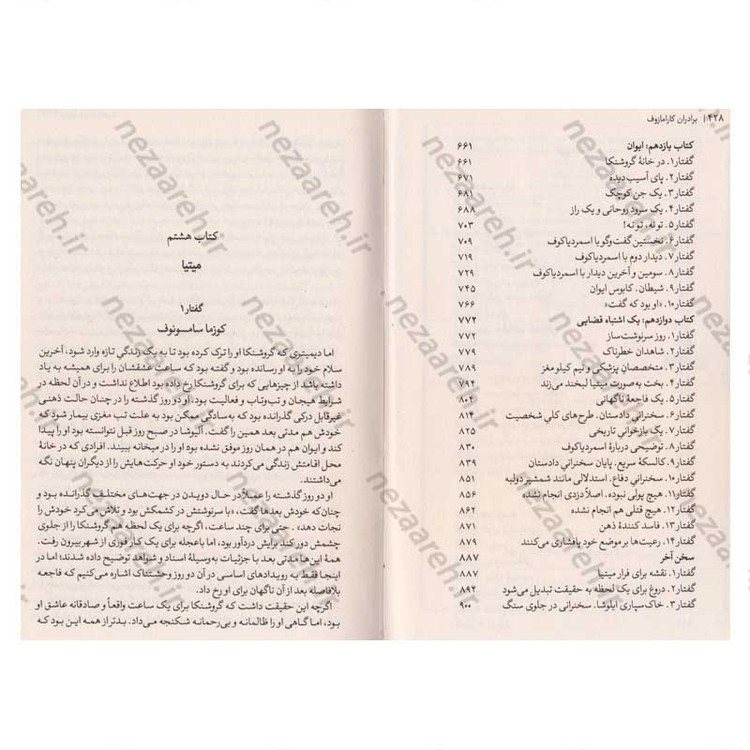 ۴۲۸ | برادران کارامازوف
کتاب یازدهم: ایوان ۶۶۱
گفتار۱. در خانهٔ گروشنکا ۶۶۱
گفتار۲. پای آسیب‌دیده ۶۷۱
گفتار۳. یک جن کوچک ۶۸۱
گفتار۴. یک سرود روحانی و یک راز ۶۸۸
گفتار۵. تو نه، تو نه! ۷۰۳
گفتار۶. نخستین گفت‌وگو با اسمردیاکوف ۷۰۹
گفتار۷. دیدار دوم با اسمردیاکوف ۷۱۹
گفتار۸. سومین و آخرین دیدار با اسمردیاکوف ۷۲۹
گفتار۹. شیطان. کابوس ایوان ۷۴۵
گفتار۱۰. «او بود که گفت» ۷۶۶
کتاب دوازدهم: یک اشتباه قضایی ۷۷۲
گفتار۱. روز سرنوشت‌ساز ۷۷۲
گفتار۲. شاهدان خطرناک ۷۷۹
گفتار۳. متخصصان پزشکی و نیم کیلو مغز ۷۸۹
گفتار۴. بخت به‌صورت میتیا لبخند می‌زند ۷۹۴
گفتار۵. یک فاجعهٔ ناگهانی ۸۰۴
گفتار۶. سخنرانی دادستان. طرح‌های کلی شخصیت ۸۱۴
گفتار۷. یک بازخوانی تاریخی ۸۲۵
گفتار۸. توضیحی دربارهٔ اسمردیاکوف ۸۳۰
گفتار۹. کالسکهٔ سریع. پایان سخنرانی دادستان ۸۳۹
گفتار۱۰. سخنرانی دفاع. استدلالی مانند شمشیر دولبه ۸۵۱
گفتار۱۱. هیچ پولی نبوده. اصلاً دزدی انجام نشده ۸۵۶
گفتار۱۲. هیچ قتلی هم انجام نشده ۸۶۲
گفتار۱۳. فاسد کنندهٔ ذهن ۸۷۱
گفتار۱۴. رعیت‌ها بر موضع خود پافشاری می‌کنند ۸۷۹
سخن آخر ۸۸۷
گفتار۱. نقشه برای فرار میتیا ۸۸۷
گفتار۲. دروغ برای یک لحظه به حقیقت تبدیل می‌شود ۸۹۲
گفتار۳. خاک‌سپاری ایلوشا. سخنرانی در جلوی سنگ ۹۰۰
کتاب هشتم
میتیا
گفتار۱
کوزما سامسونوف
اما دیمیتری که گروشنکا او را ترک کرده بود تا به یک زندگی تازه وارد شود، آخرین
سلام خود را به او رسانده بود و گفته بود که ساعت عشقشان را برای همیشه به یاد
داشته باشد از چیزهایی که برای گروشنکا رخ داده بود اطلاع نداشت و در آن لحظه در
شرایط هیجان و تب‌وتاب و فعالیت بود. او دو روز گذشته را در چنان حالت ذهنی
غیرقابل درکی گذرانده بود که به‌سادگی ممکن بود به علت تب مغزی بیمار شود که
خودش هم مدتی بعد همین را گفت. آلیوشا در صبح روز قبل نتوانسته بود او را پیدا
کند و ایوان هم در همان روز موفق نشده بود او را در میخانه ببیند. افرادی که در خانهٔ
محل اقامتش زندگی می‌کردند به دستور خود او حرکت‌هایش را از دیگران پنهان نگه
می‌داشتند.
او دو روز گذشته را عملاً در حال دویدن در جهت‌های مختلف گذرانده بود و
چنان‌که خودش بعدها گفت، «با سرنوشتش در کشمکش بود و تلاش می‌کرد خودش را
نجات دهد» . حتی برای چند ساعت، اگرچه برای یک لحظه هم گروشنکا را از جلوی
چشمش دور کند برایش دردآور بود، اما باعجله برای یک کار فوری از شهر بیرون رفت.
همهٔ این‌ها مدتی بعد با جزئیات به‌وسیلهٔ اسناد و شواهد توضیح داده شدند؛ اما در
اینجا فقط به رویدادهای اساسی در آن دو روز وحشتناک اشاره می‌کنیم که فاجعه
بلافاصله بعد از آن ناگهان برای او رخ داد.
اگرچه این حقیقت داشت که گروشنکا برای یک ساعت واقعاً و صادقانه عاشق او
بود، اما گاهی او را ظالمانه و بی‌رحمانه شکنجه می‌داد. بدتر از همه این بود که
nezaareh.ir